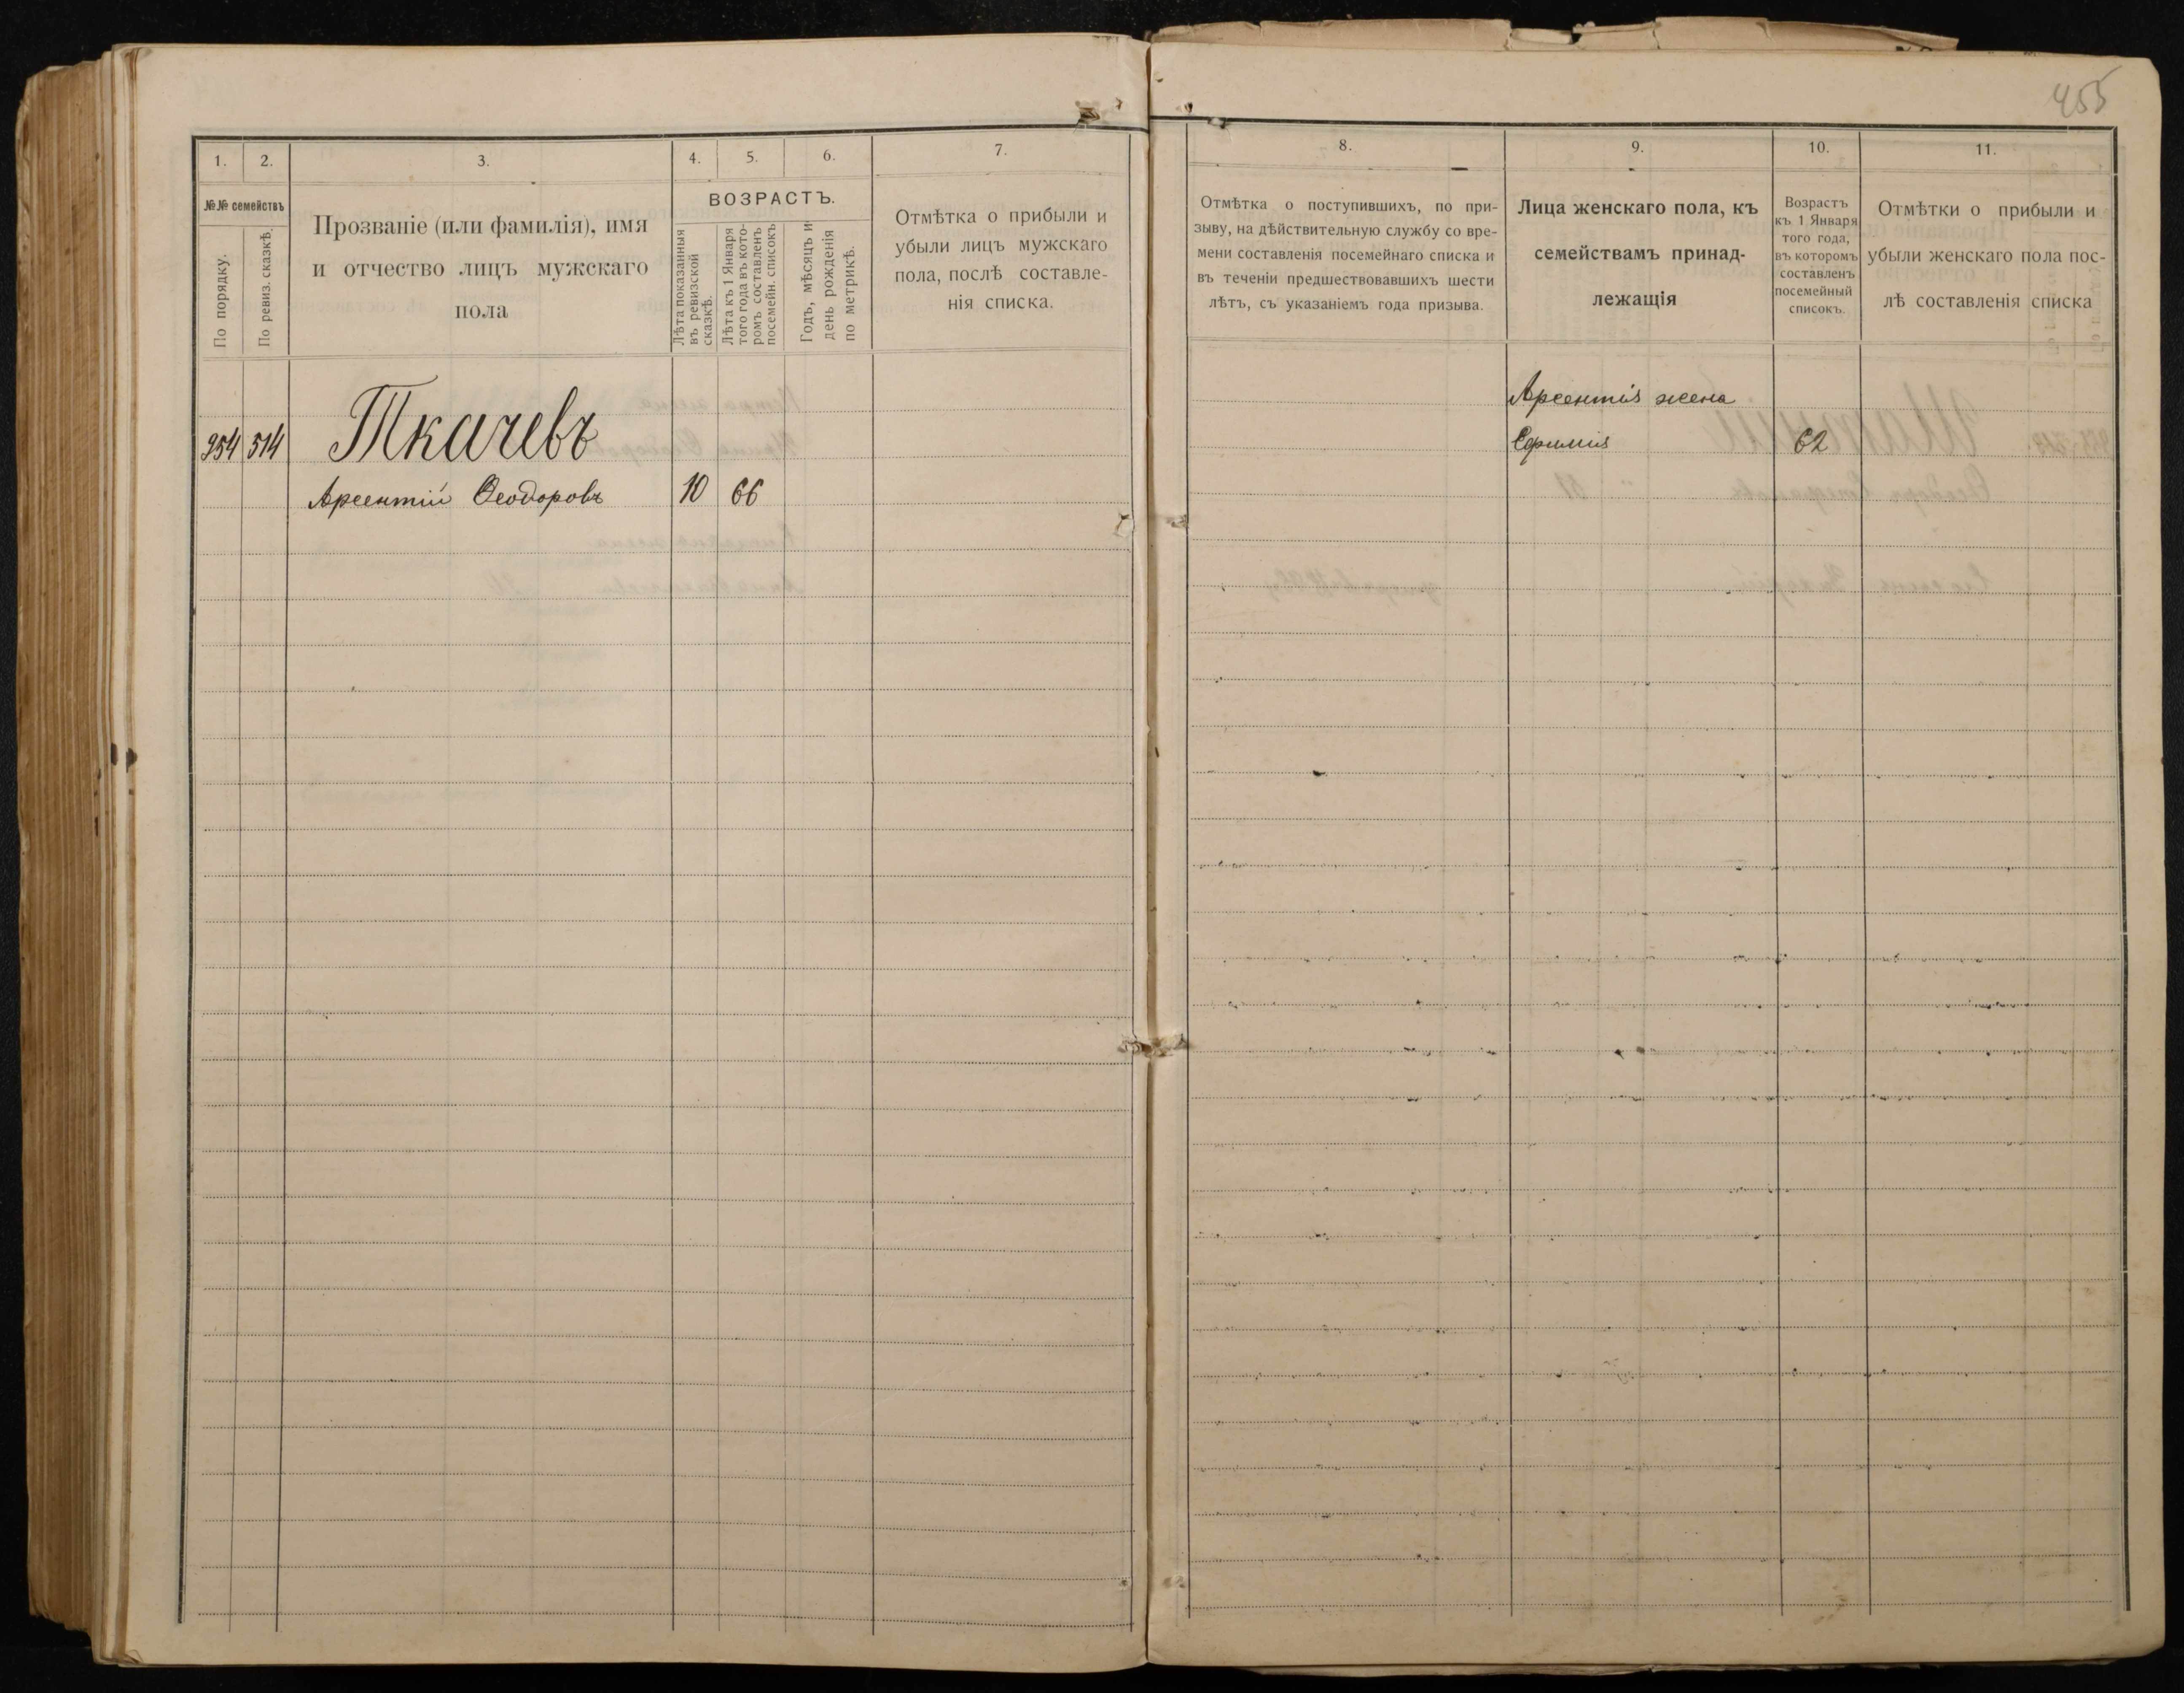 455
1.
2.
3.
4.
5.
6.
7.
№№ семействъ
По порядку.
По ревиз. сказкѣ.
Прозваніе (или фамилія), имя
и отчество лицъ мужскаго
пола
ВОЗРАСТЪ.
Лѣта показанныя
въ ревизской
сказкѣ.
Лѣта къ 1 Января
того года въ кото-
ромъ составленъ
посемейн. списокъ
Годъ, мѣсяцъ и
день рожденія
по метрикѣ.
Отмѣтка о прибыли и
убыли лицъ мужскаго
пола, послѣ составле-
нія списка.
954 514 Ткачевъ
Арсентій Ѳеодоровъ 10 66
8.
9.
10.
11.
Отмѣтка о поступившихъ, по при-
зыву, на дѣйствительную службу со вре-
мени составленія посемейнаго списка и
въ теченіи предшествовавшихъ шести
лѣтъ, съ указаніемъ года призыва.
Лица женскаго пола, къ
семействамъ принад-
лежащія
Возрастъ
къ 1 Января
того года,
въ которомъ
составленъ
посемейный
списокъ.
Отмѣтки о прибыли и
убыли женскаго пола пос-
лѣ составленія списка
Арсентія жена
Ефимія 62